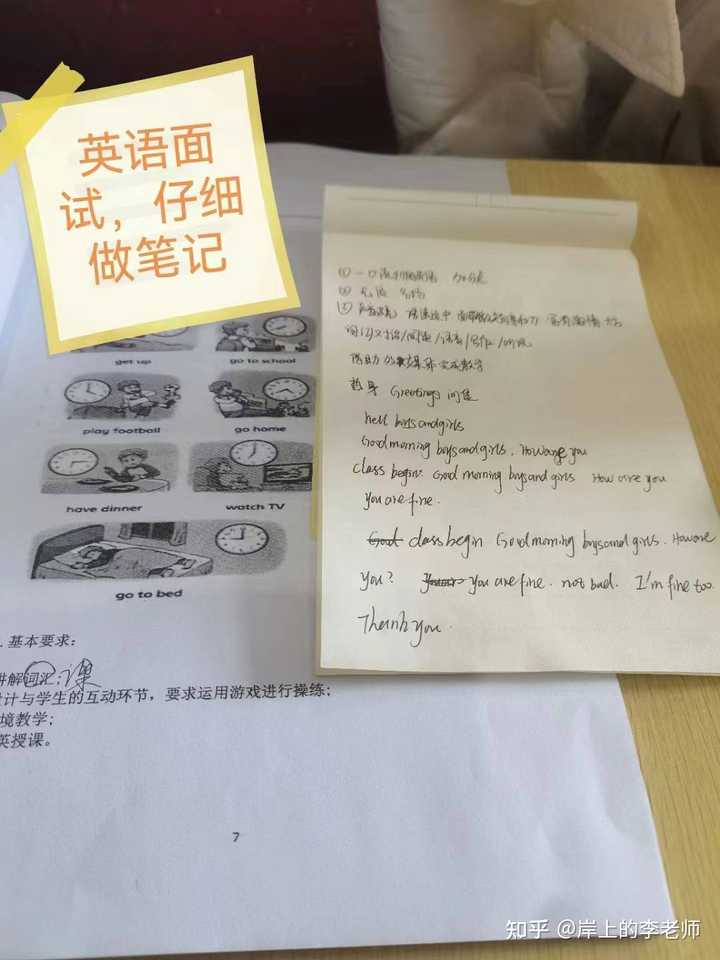 英语面
试，仔细
做笔记
get up
go to school
play football
go home
have dinner
watch TV
go to bed
基本要求：
讲解词汇；课
计与学生的互动环节，要求运用游戏进行操练；
境教学；
英授课。
7
① 一口流利的英语
②
③
借助 实现教学
热身 Greetings 问候
hell boys and girls
Good morning boys and girls. How are you
class begin: Good morning boys and girls How are you
you are fine.
class begin Good morning boys and girls. How are
you? you are fine. not bad. I'm fine too.
Thank you.
知乎 @岸上的李老师